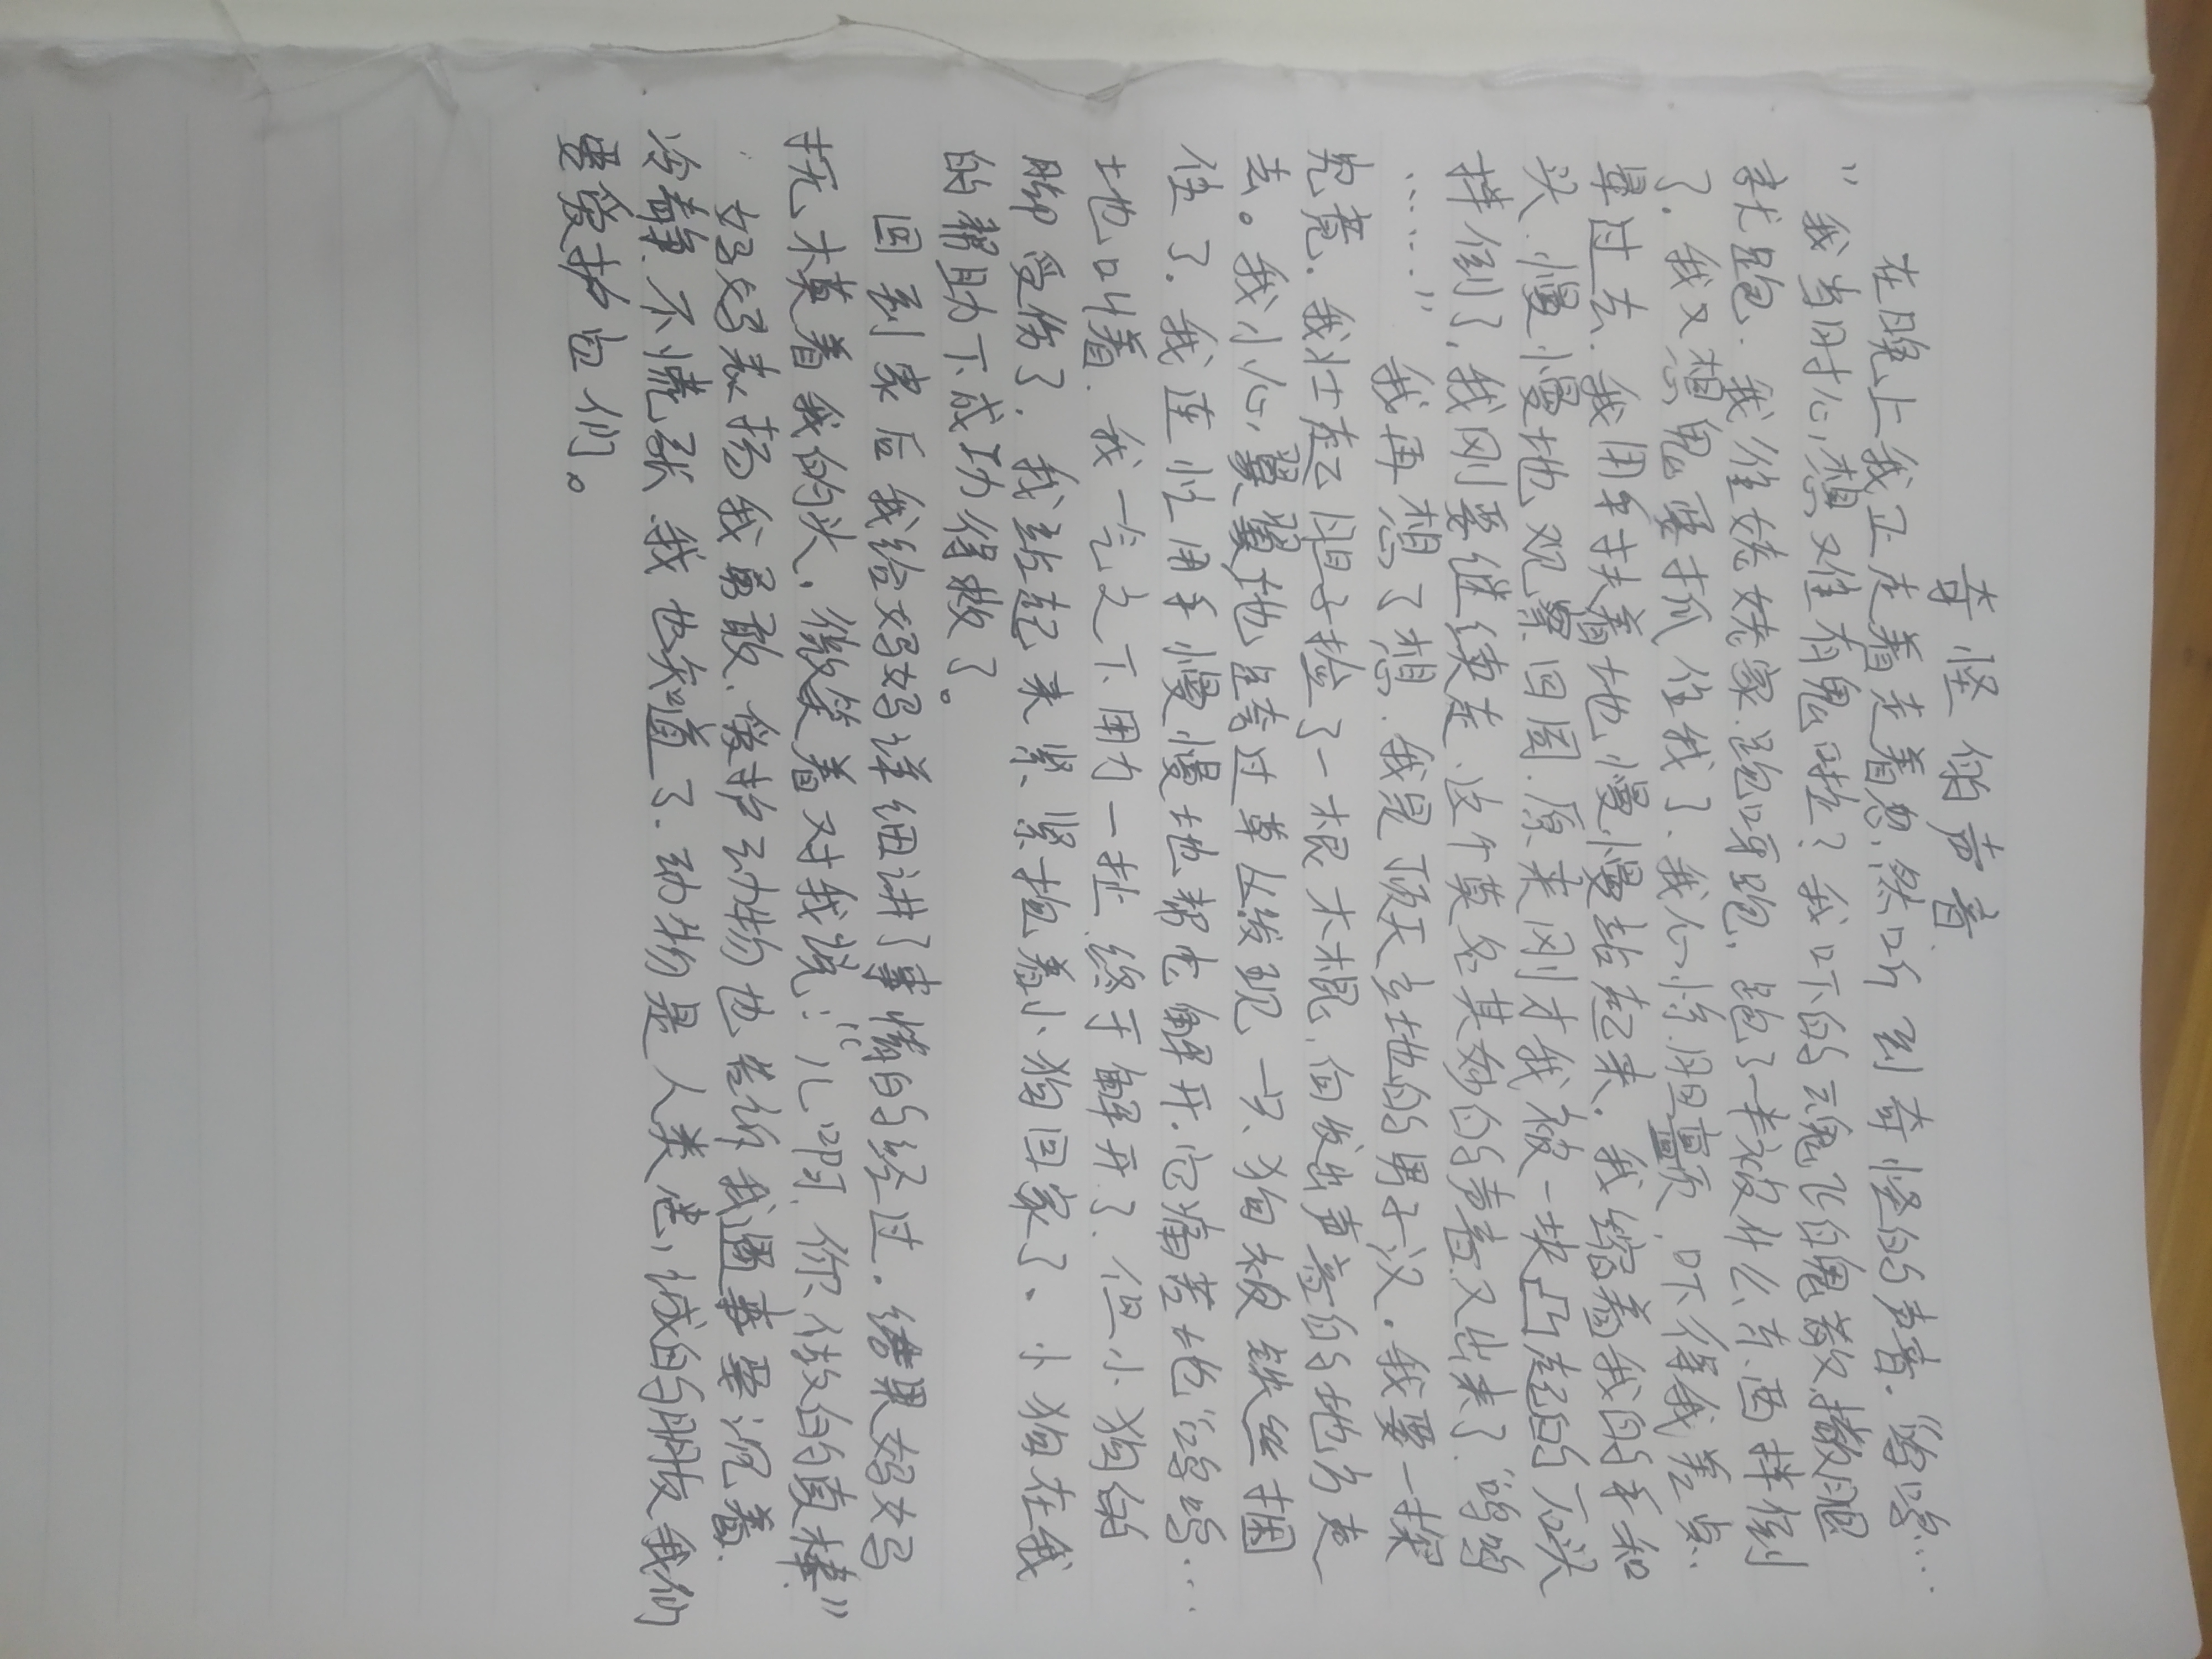 奇怪的声音
在晚上我正走着走着忽然听到奇怪的声音.“呜呜…
”我当时心想又难有鬼啦?我吓的云魂飞伯魄散.撤腿
就跑.我往姥姥家跑呀跑.跑了一半被什么东西拌倒
了.我又想鬼要抓住我了.我心惊胆颤,吓得我差点
晕过去.我用手扶着地慢慢站起来.我缩着我的手和
头.慢慢地观察四周.原来刚才我被一块凸起的石头
拌倒了.我刚要继续走.这个莫名其妙的声音又出来了.“呜呜
……”
我再想了想.我是顶天立地的男子汉.我要一探
究竟.我壮起胆子捡了一根木棍,向发出声音的地方走
去。我小心翼翼地垮过草丛发现一只狗被铁丝捆
住了.我连忙用手慢慢地帮它解开.它痛苦地“呜呜…
地叫着.我一气之下用力一扯.终于解开了.但小狗的
脚受伤了.我站起来紧紧抱着小狗回家了、小狗在我
的帮助下成功得救了。
回到家后我给妈妈详细讲了事情的经过.结果妈妈
抚摸着我的头,微笑着对我说:“儿啊.你做的真棒.”
妈妈表扬我勇敢、爱护动物也告诉我遇事要沉着.
冷静.不慌张.我也知道了.动物是人类忠诚的朋友我们
要爱护它们。